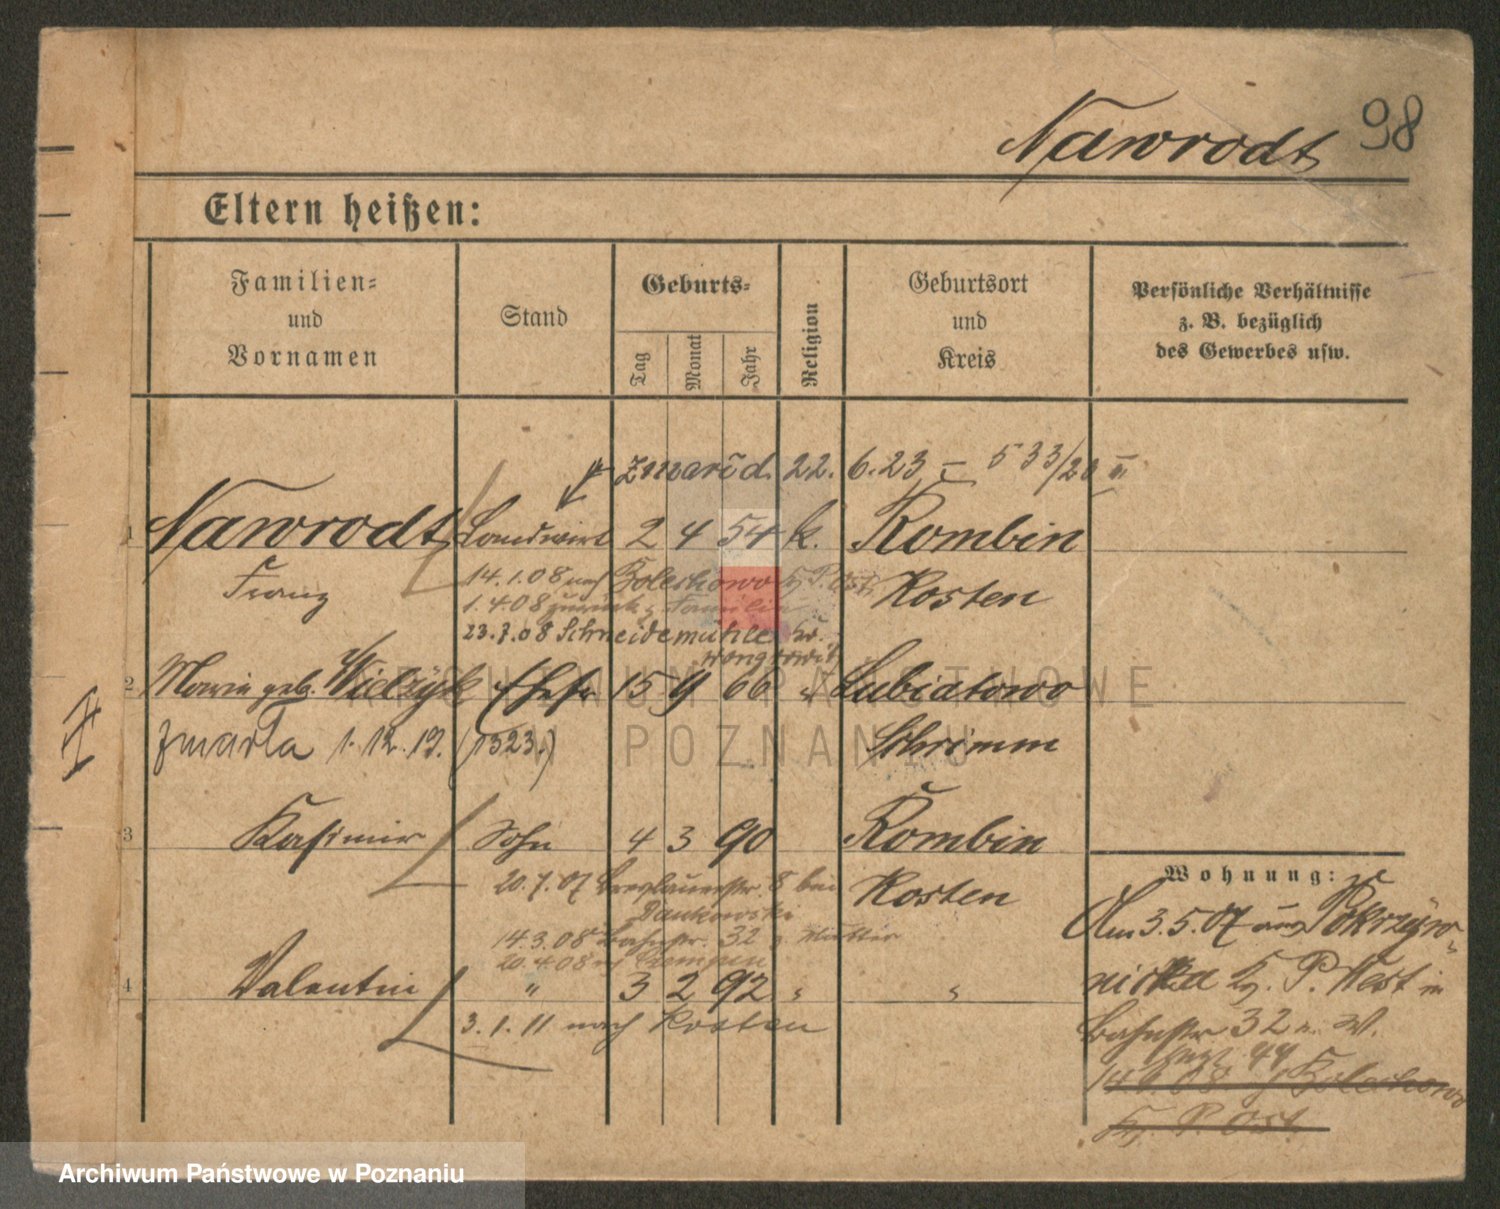 98
Nawrodt
Eltern heißen:
Familien-
und
Vornamen
Stand
Geburts-
Tag
Monat
Jahr
Religion
Geburtsort
und
Kreis
Persönliche Verhältnisse
z. B. bezüglich
des Gewerbes usw.
zmarł d. 22. 6. 23 - 533/23 II
1 Nawrodt Landwirt 2 4 54 k. Rombin
Franz Kosten
14.1.08 nach Golechowo Kr. P. Ost
1.4.08 zurück z. Familie
23.7.08 Schneidemühle Kr.
2 Marie geb. Wielzÿk Ehefr. 15 9 66 " Lubiatowo
zmarła 1.12.19. (1323.) Schrimm
3 Kasimir Sohn 4 3 90 Rombin
Kosten
20.7.07 Breslauerstr. 8 bei
Dankowski
14.3.08 Bahnstr. 32 z. Mutter
20.4.08 n/ Czempin
4 Valentin " 3 2 92 " "
3.1.11 nach Kosten
Wohnung:
Am 3.5.07 aus Pokrzÿw-
nicka Kr. P. West in
Bahnstr 32 n. W.
14.1.08 Golechowo
Kr. P. Ost
ARCHIWUM PAŃSTWOWE
W POZNANIU
Archiwum Państwowe w Poznaniu